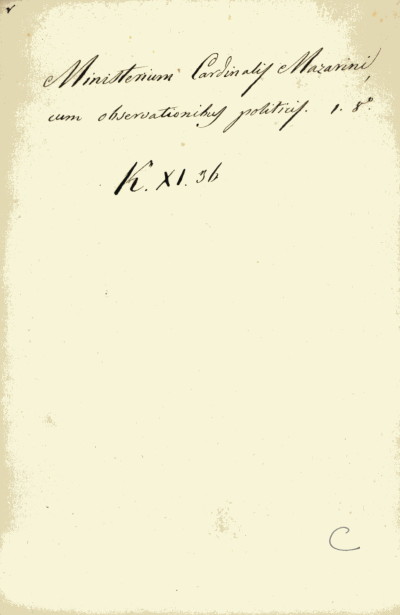 Ministerium Cardinalis Mazarini,
cum observationibus politicis. 1. 8°.
K. XI. 36
C